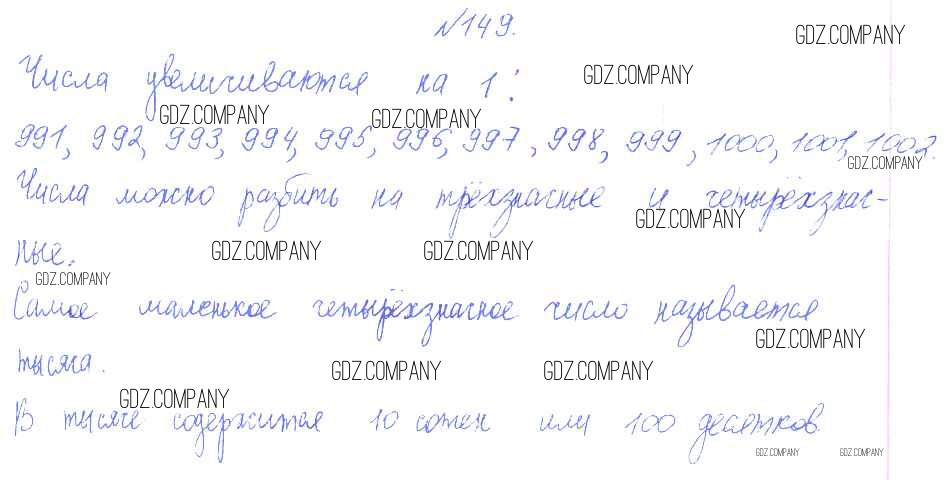 №149.
GDZ.COMPANY
Числа увеличиваются на 1:
GDZ.COMPANY
GDZ.COMPANY GDZ.COMPANY
991, 992, 993, 994, 995, 996, 997, 998, 999, 1000, 1001, 1002.
GDZ.COMPANY
Числа можно разбить на трёхзначные и четырёхзнач-
GDZ.COMPANY
ные.
GDZ.COMPANY GDZ.COMPANY
GDZ.COMPANY
Самое маленькое четырёхзначное число называется
GDZ.COMPANY
тысяча.
GDZ.COMPANY GDZ.COMPANY
GDZ.COMPANY
В тысяче содержится 10 сотен или 100 десятков.
GDZ.COMPANY GDZ.COMPANY